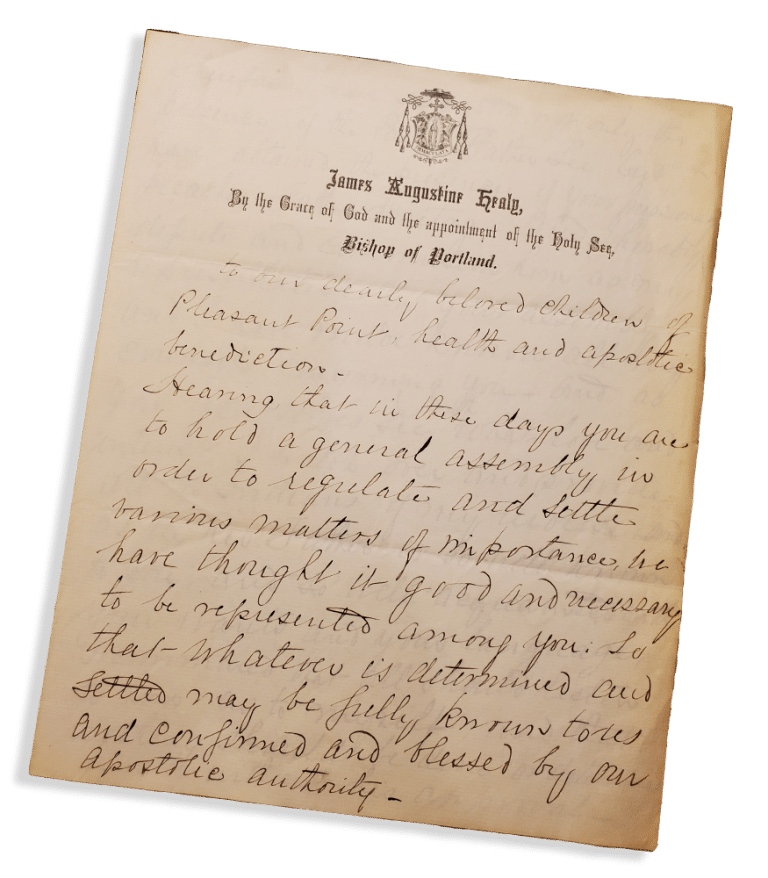 James Augustine Healy,
By the Grace of God and the appointment of the Holy See,
Bishop of Portland.
to our dearly beloved children of
Pleasant Point, health and apostolic
benediction.
Hearing that in these days you are
to hold a general assembly in
order to regulate and settle
various matters of importance, we
have thought it good and necessary
to be represented among you: so
that whatever is determined and
settled may be fully known to us
and confirmed and blessed by our
apostolic authority.